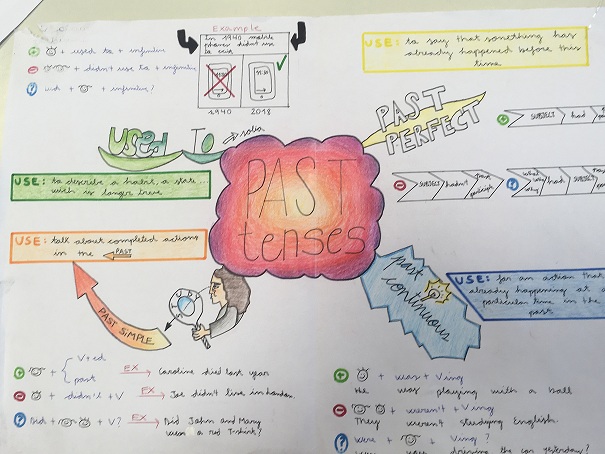 + used to + infinitive
- + didn't use to + infinitive
? + + infinitive?
Example
In 1940 mobile
phones didn't use
to exist
1940 2018
USED TO → solia
USE: to describe a habit, a state...
USE: talk about completed actions
in the PAST
PAST SIMPLE
+ + V+ed
past
EX → Caroline died last year
- + didn't + V EX → Joe didn't live in London
? Did + + V? EX → Did John and Mary
a red T-shirt?
PAST
tenses
USE: to say that something has
already happened before this
time
PAST
PERFECT
+ SUBJECT had
- SUBJECT hadn't past participle
? what why had SUBJECT
past
continuous
USE: for an action that
already happening at a
particular time in the
past
+ + was + Ving
He was playing with a ball
- + weren't + Ving
They weren't studying English
? Were + + Ving?
driving the car yesterday?